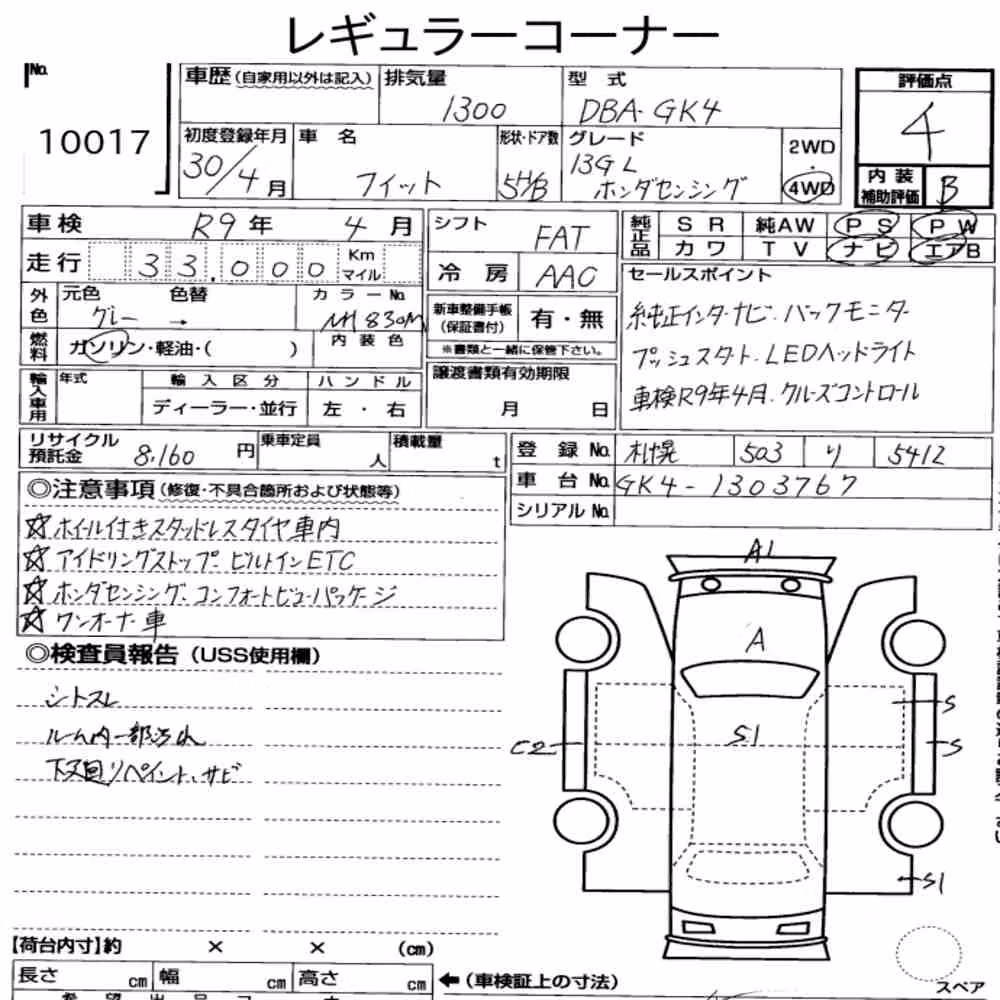 レギュラーコーナー
No.
10017
車歴(自家用以外は記入)
排気量
1300
型式
DBA-GK4
評価点
4
内装補助評価
B
初度登録年月
30/4月
車名
フィット
形状・ドア数
5H/B
グレード
13GL
ホンダセンシング
2WD
・
4WD
車検
R9年 4月
走行
33,000
Km
マイル
シフト
FAT
冷房
AAC
純正品
SR 純AW PS PW
カワ TV ナビ エアB
外色
元色 色替
グレー →
カラーNo.
NH830M
燃料
ガソリン・軽油・( )
内装色
新車整備手帳(保証書付)
有・無
※書類と一緒に保管下さい。
セールスポイント
純正インターナビ・バックモニター
プッシュスタート. LEDヘッドライト
車検R9年4月. クルーズコントロール
輸入車用
年式
輸入区分
ディーラー・並行
ハンドル
左・右
譲渡書類有効期限
月 日
リサイクル預託金
8,160円
乗車定員
人
積載量
t
登録No.
札幌 503 り 5412
車台No.
GK4-1303767
シリアルNo.
◎注意事項(修復・不具合箇所および状態等)
☆ホイール付きスタッドレスタイヤ車内
☆アイドリングストップ ビルトインETC
☆ホンダセンシング. コンフォートビューパッケージ
☆ワンオーナー車
◎検査員報告(USS使用欄)
シートスレ
ルーム内一部汚れ
下回リペイント、サビ
A1
A
S1
S
S
C2
S1
スペア
【荷台内寸】約 × × (cm)
長さ cm 幅 cm 高さ cm
←(車検証上の寸法)